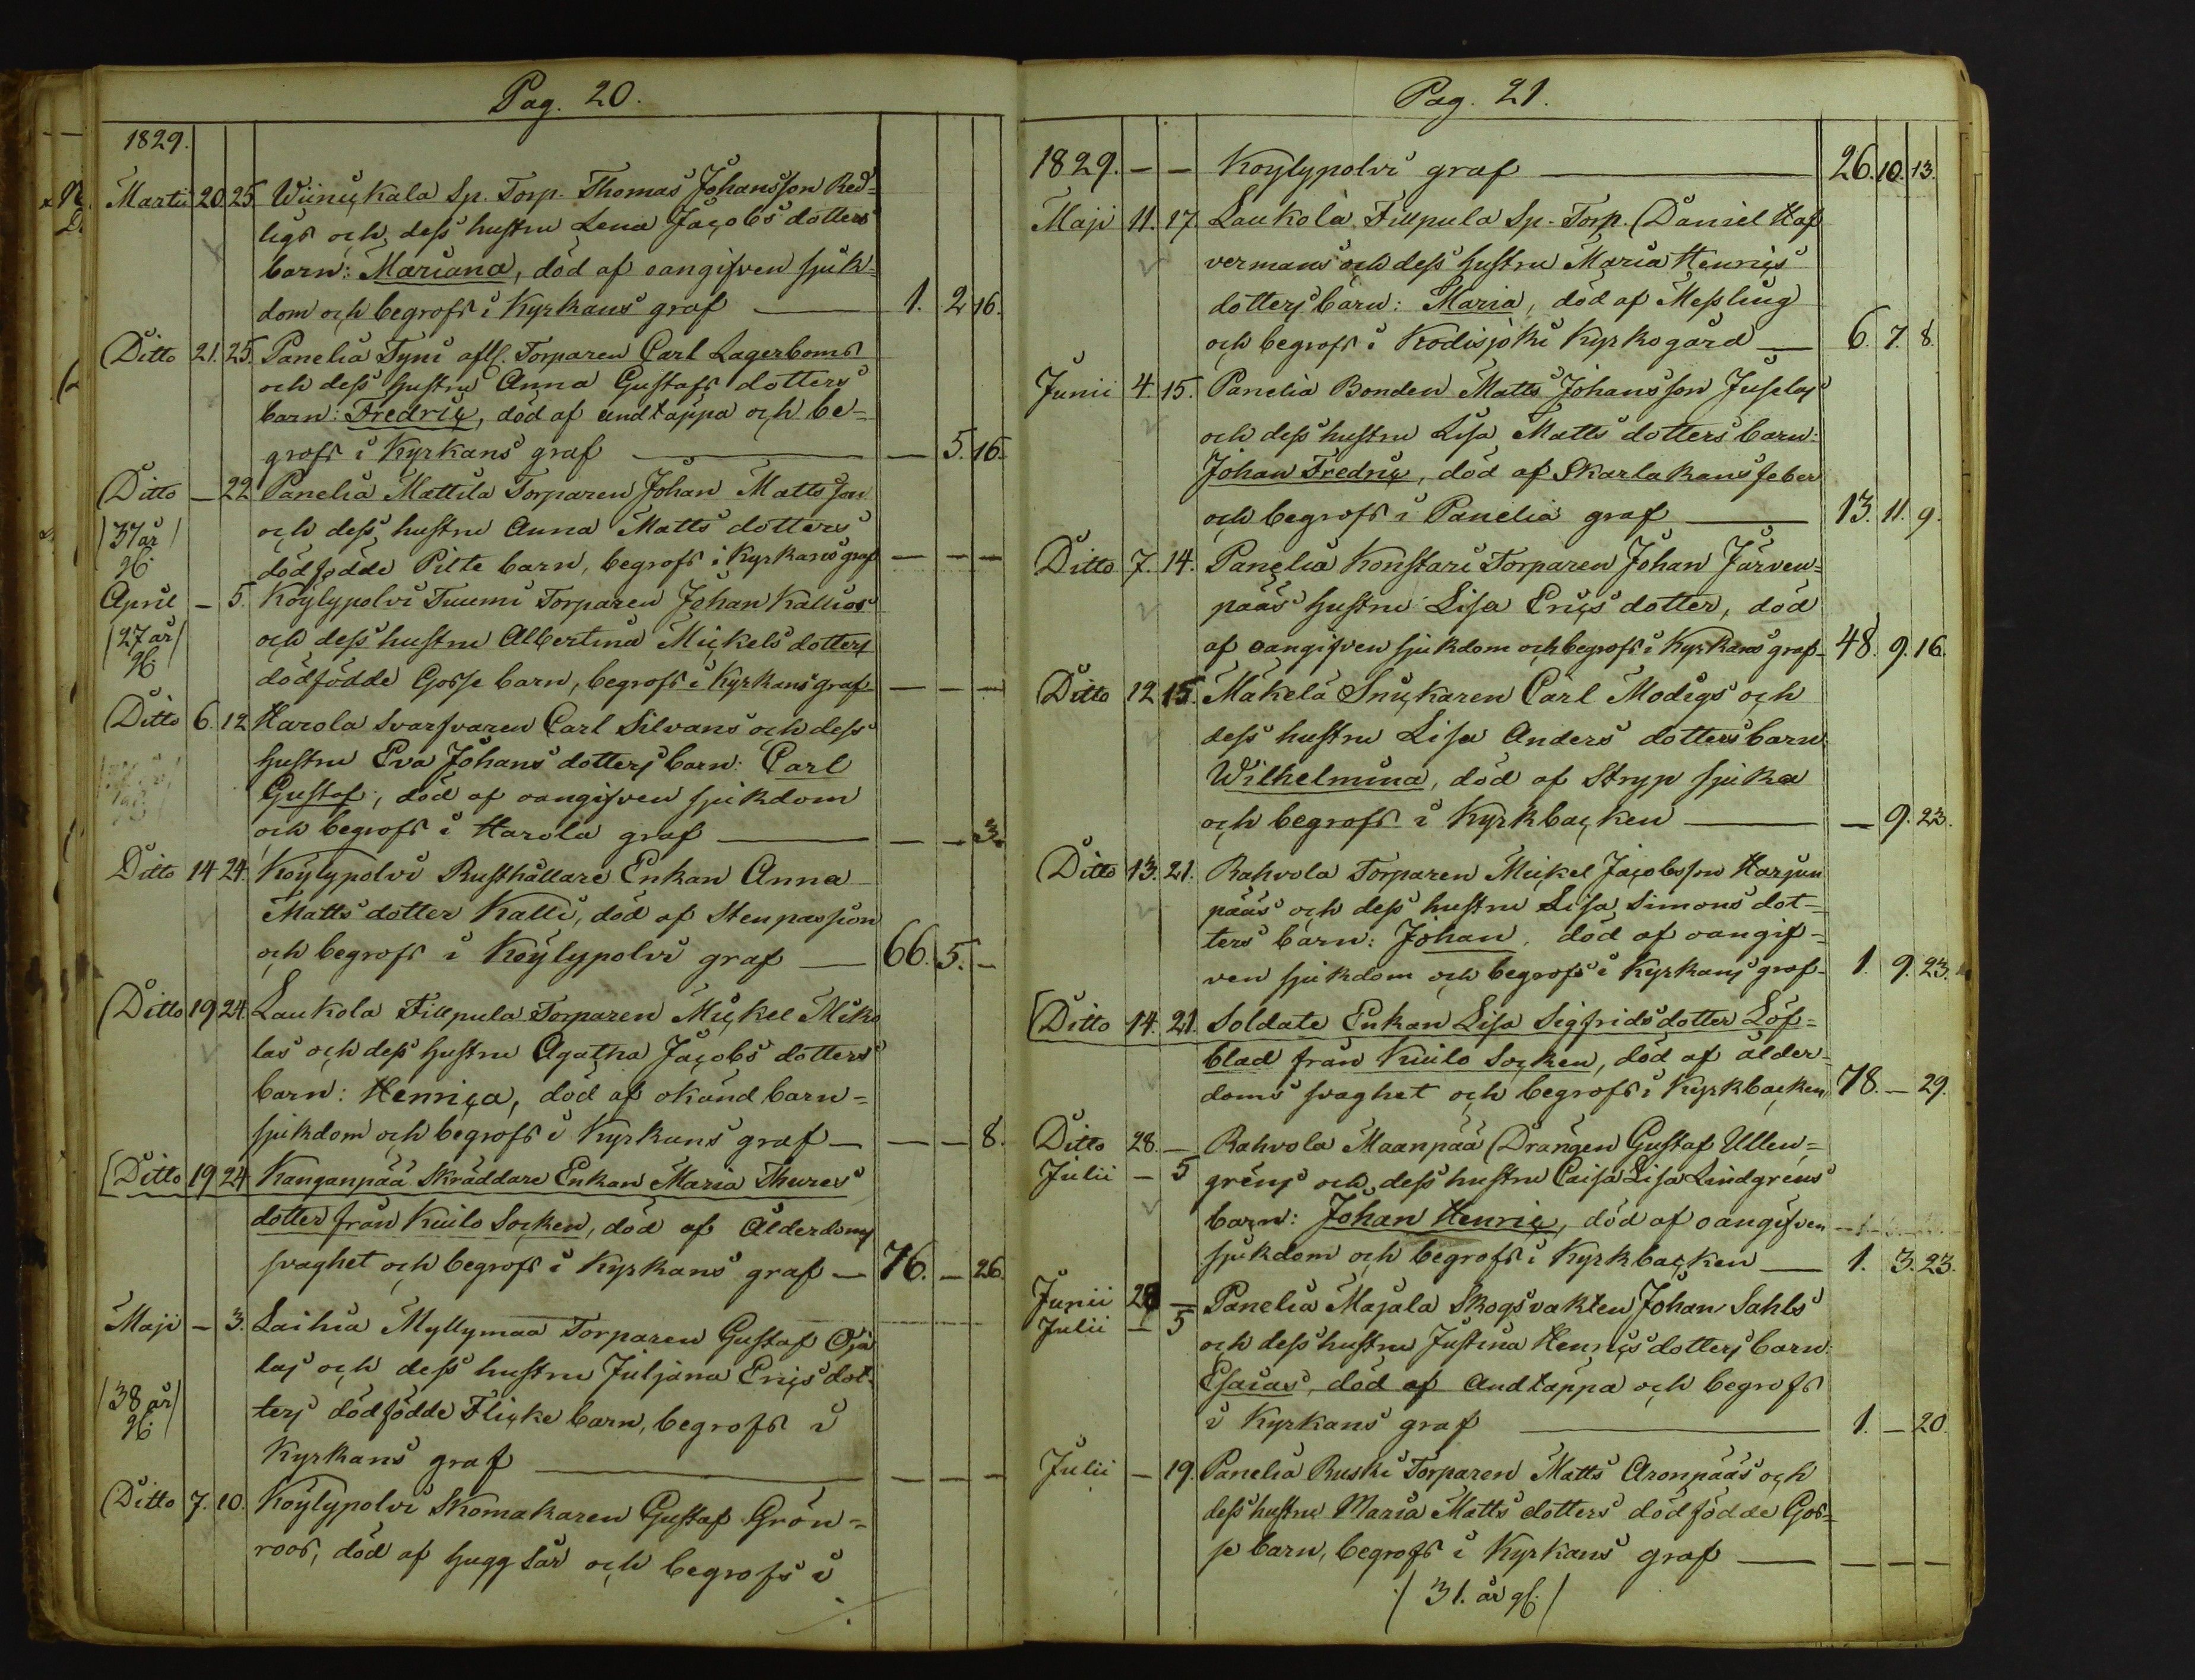 Pag. 20.
1829.
Martii 20. 25. Wiinickala Sp. Torp. Thomas Johansson Red-
ligs och dess hustru Lena Jacobs dotters
barn: Mariana, död af oangifven sjuk-
dom och begrofs i Kyrkans graf — 1. 2. 16.
Ditto 21. 25. Panelia Tyni afl. Torparen Carl Lagerboms
och dess hustru Anna Gustafs dotters
barn: Fredric, död af andtäppa och be-
grofs i Kyrkans graf — — 5. 16.
Ditto — 22 Panelia Mattila Torparen Johan Mattsson
/37 år/ och dess hustru Anna Matts dotters
gl. dödfödde Pilte barn, begrofs i Kyrkans graf — — —
April — 5. Köylypolvi Tuumi Torparen Johan Kallios
/27 år/ och dess hustru Albertina Mickels dotters
gl. dödfödde Gosse barn, begrofs i Kyrkans graf — — —
Ditto 6. 12 Harola Svarfvaren Carl Silvans och dess
hustru Eva Johans dotters barn: Carl
Gustaf, död af oangifven sjukdom
och begrofs i Harola graf — — — 3.
Ditto 14 24. Köylypolvi Rusthållare Enkan Anna
Matts dotter Kalli, död af Stenpassion
och begrofs i Köylypolvi graf — 66. 5. —
Ditto 19 24. Laukola Fillpula Torparen Mickel Miko
las och dess hustru Agatha Jacobs dotters
barn: Henrica, död af okänd barn-
sjukdom och begrofs i Kyrkans graf — — — 8.
Ditto 19 24 Kanganpää Skräddare Enkan Maria Thures
dotter från Kiulo Socken, död af Ålderdoms
svaghet och begrofs i Kyrkans graf — 76. — 26.
Maji — 3. Laihia Myllymaa Torparen Gustaf Oja
las och dess hustru Juljana Erics dot-
/38 år/ ters dödfödde Flicke barn, begrofs i
gl. Kyrkans graf — — — —
Ditto 7. 10. Köylypolvi Skomakaren Gustaf Grön-
roos, död af hugg sår och begrofs i
Pag. 21.
1829. — — Köylypolvi graf — 26. 10. 13.
Maji 11. 17. Laukola Fillpula Sp. Torp. Daniel Haf
vermans och dess hustru Maria Henrics
dotters barn: Maria, död af Messling
och begrofs i Kodisjoki Kyrkogård — 6. 7. 8.
Junii 4. 15. Panelia Bonden Matts Johansson Juselas
och dess hustru Lisa Matts dotters barn:
Johan Fredric, död af Skarlakans feber
och begrofs i Panelia graf — 13. 11. 9.
Ditto 7. 14. Panelia Konstari Torparen Johan Järven-
pääs hustru Lisa Erics dotter, död
af oangifven sjukdom och begrofs i Kyrkans graf — 48. 9. 16.
Ditto 12 15. Mäkelä Snickaren Carl Modigs och
dess hustru Lisa Anders dotters barn
Wilhelmina, död af Stryp sjuka
och begrofs i Kyrkbacken — — 9. 23.
Ditto 13. 21. Rahvola Torparen Mickel Jacobsson Harjun
pääs och dess hustru Lisa Simons dot-
ters barn: Johan, död af oangif-
ven sjukdom och begrofs i Kyrkans graf — 1. 9. 23.
Ditto 14. 21. Soldate Enkan Lisa Sigfrids dotter Löf-
blad från Kiulo Socken, död af ålder-
doms svaghet och begrofs i Kyrkbacken 78. — 29.
Ditto 28. — Rahvola Maanpää Drängen Gustaf Ullen-
Julii — 5 gréns och dess hustru Caisa Lisa Lindgréns
barn: Johan Henric, död af oangifven
sjukdom och begrofs i Kyrkbacken — 1. 3. 23.
Junii 28 — Panelia Majala Skogsvakten Johan Sahls
Julii — 5 och dess hustru Justina Henrics dotters barn:
Esaias, död af Andtäppa och begrofs
i Kyrkans graf — 1. — 20.
Julii — 19. Panelia Ruski Torparen Matts Aronpääs och
dess hustru Maria Matts dotters dödfödde Gos-
se barn, begrofs i Kyrkans graf — — — —
/31. år gl./